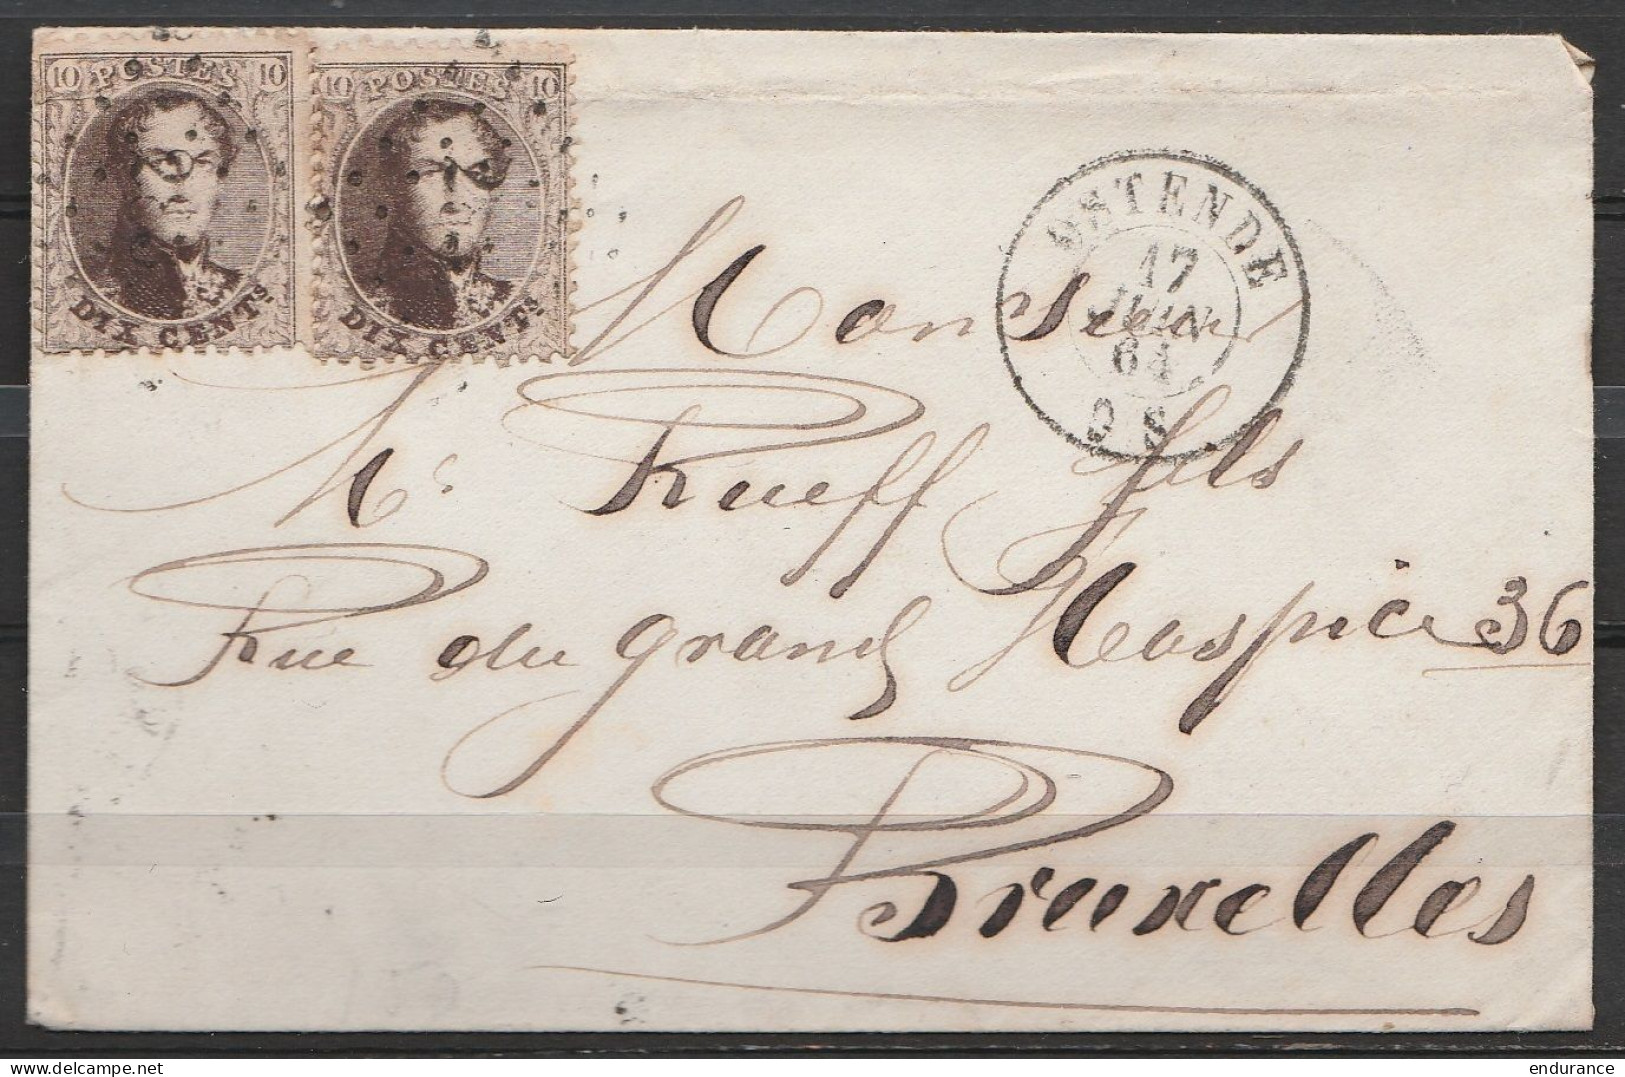 10 POSTES 10
DIX CENTS.
10 POSTES 10
DIX CENTS.
OSTENDE
17
JUIN
64
Monsieur
Mr. Rueff fils
Rue du grand Hospice 36
Bruxelles
endurance